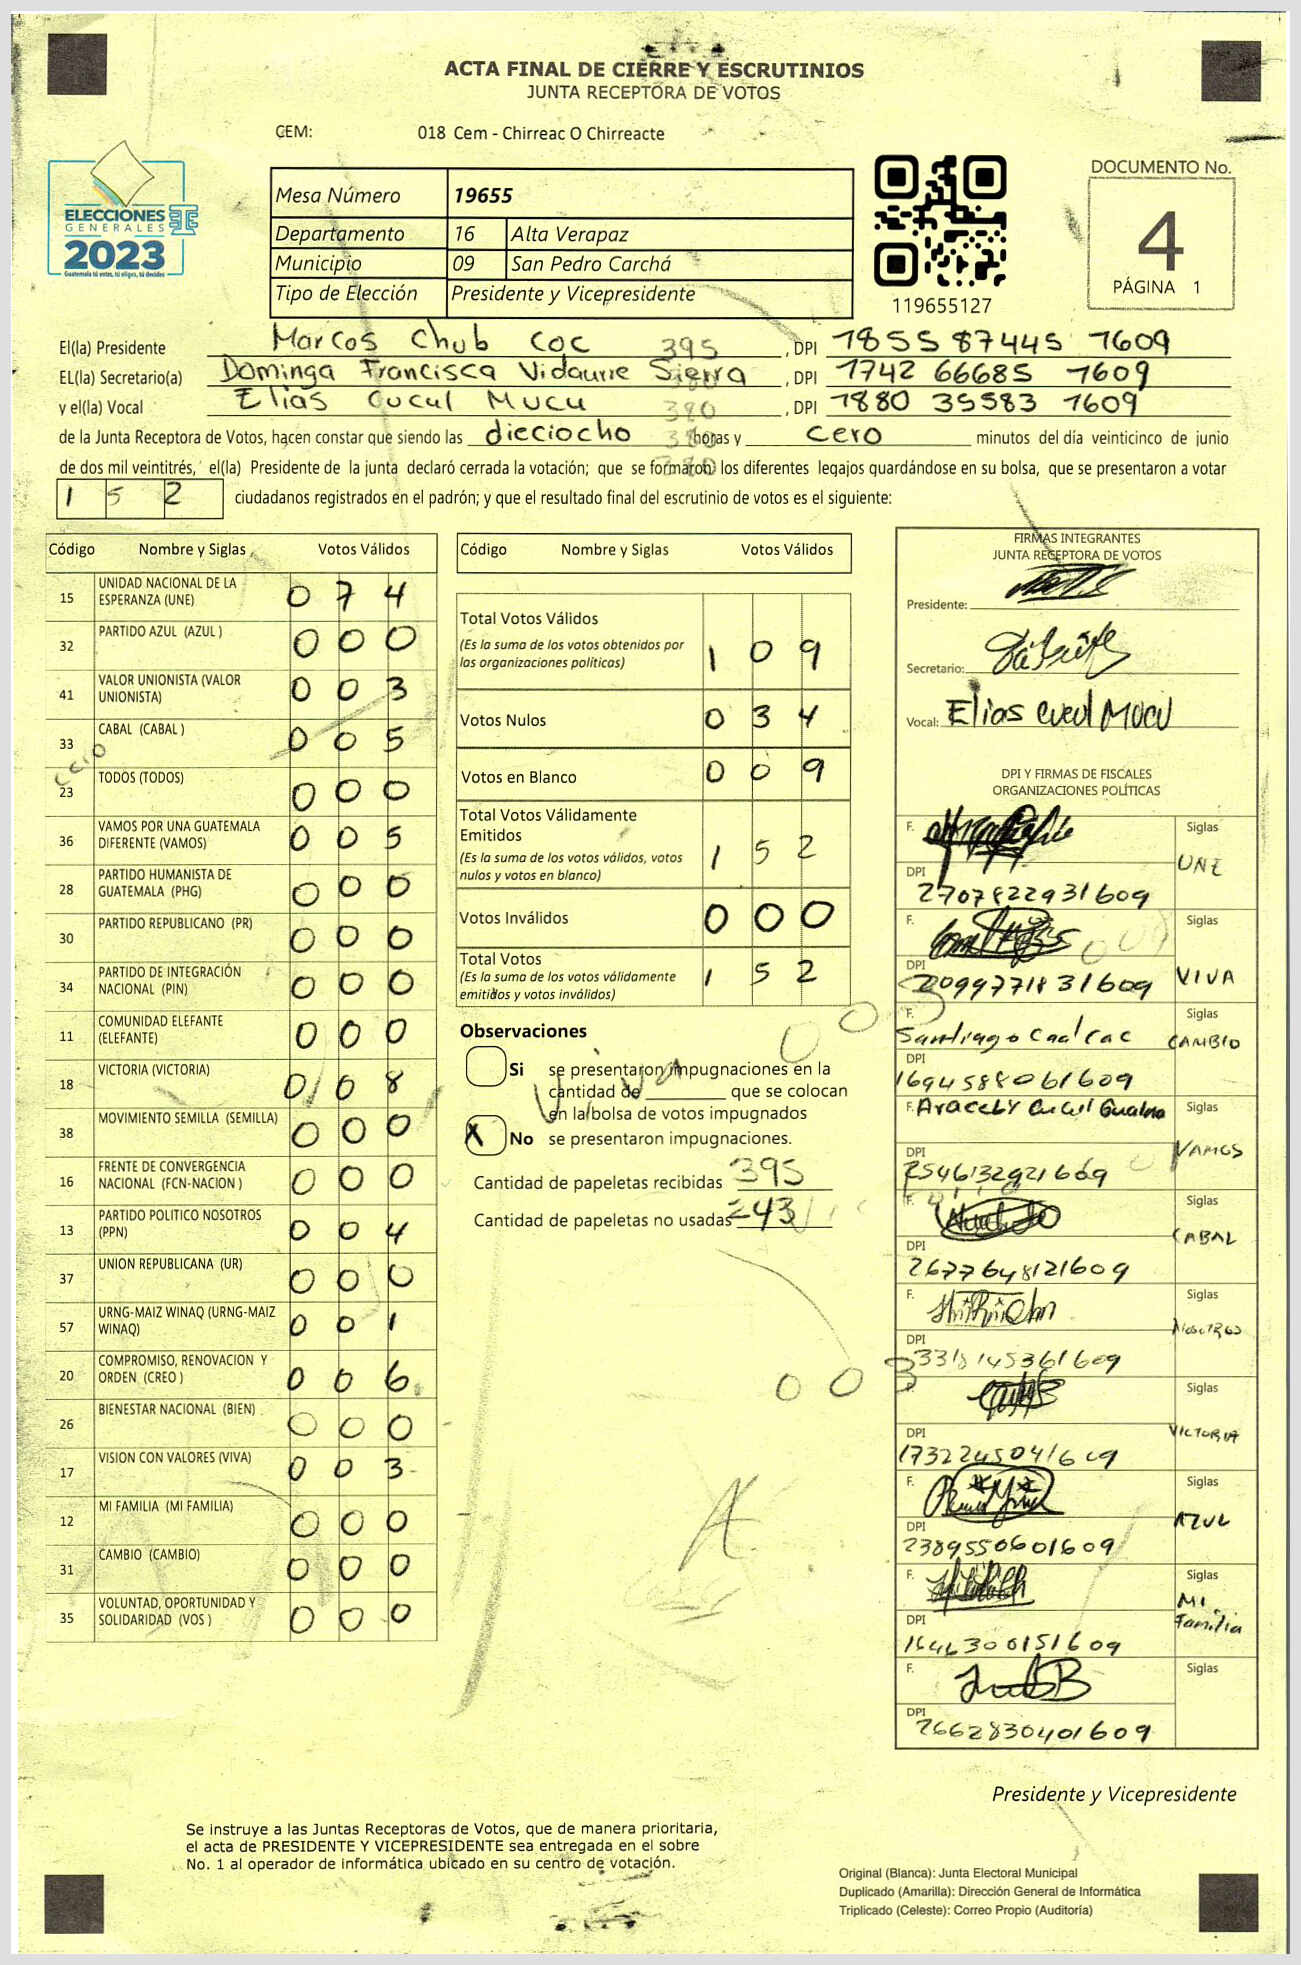 ACTA FINAL DE CIERRE Y ESCRUTINIOS
JUNTA RECEPTORA DE VOTOS
CEM: 018 Cem - Chirreac O Chirreacte
ELECCIONES
GENERALES
2023
Guatemala tú votas, tú eliges, tú decides
Mesa Número 19655
Departamento 16 Alta Verapaz
Municipio 09 San Pedro Carchá
Tipo de Elección Presidente y Vicepresidente
119655127
DOCUMENTO No.
4
PÁGINA 1
El(la) Presidente Marcos Chub Coc 395 , DPI 1855 87445 1609
EL(la) Secretario(a) Dominga Francisca Vidaurre Sierra , DPI 1742 66685 1609
y el(la) Vocal Elias Cucul Mucu 380 , DPI 1880 35583 1609
de la Junta Receptora de Votos, hacen constar que siendo las dieciocho horas y cero minutos del día veinticinco de junio
de dos mil veintitrés, el(la) Presidente de la junta declaró cerrada la votación; que se formaron los diferentes legajos guardándose en su bolsa, que se presentaron a votar
1 5 2 ciudadanos registrados en el padrón; y que el resultado final del escrutinio de votos es el siguiente:
Código Nombre y Siglas Votos Válidos
15 UNIDAD NACIONAL DE LA ESPERANZA (UNE) 0 7 4
32 PARTIDO AZUL (AZUL ) 0 0 0
41 VALOR UNIONISTA (VALOR UNIONISTA) 0 0 3
33 CABAL (CABAL ) 0 0 5
cero
23 TODOS (TODOS) 0 0 0
36 VAMOS POR UNA GUATEMALA DIFERENTE (VAMOS) 0 0 5
28 PARTIDO HUMANISTA DE GUATEMALA (PHG) 0 0 0
30 PARTIDO REPUBLICANO (PR) 0 0 0
34 PARTIDO DE INTEGRACIÓN NACIONAL (PIN) 0 0 0
11 COMUNIDAD ELEFANTE (ELEFANTE) 0 0 0
18 VICTORIA (VICTORIA) 0 0 8
38 MOVIMIENTO SEMILLA (SEMILLA) 0 0 0
16 FRENTE DE CONVERGENCIA NACIONAL (FCN-NACION ) 0 0 0
13 PARTIDO POLITICO NOSOTROS (PPN) 0 0 4
37 UNION REPUBLICANA (UR) 0 0 0
57 URNG-MAIZ WINAQ (URNG-MAIZ WINAQ) 0 0 1
20 COMPROMISO, RENOVACION Y ORDEN (CREO ) 0 0 6
26 BIENESTAR NACIONAL (BIEN) 0 0 0
17 VISION CON VALORES (VIVA) 0 0 3
12 MI FAMILIA (MI FAMILIA) 0 0 0
31 CAMBIO (CAMBIO) 0 0 0
35 VOLUNTAD, OPORTUNIDAD Y SOLIDARIDAD (VOS ) 0 0 0
Código Nombre y Siglas Votos Válidos
Total Votos Válidos 1 0 9
(Es la suma de los votos obtenidos por
las organizaciones políticas)
Votos Nulos 0 3 4
Votos en Blanco 0 0 9
Total Votos Válidamente
Emitidos 1 5 2
(Es la suma de los votos válidos, votos
nulos y votos en blanco)
Votos Inválidos 0 0 0
Total Votos 1 5 2
(Es la suma de los votos válidamente
emitidos y votos inválidos)
Observaciones
Si se presentaron impugnaciones en la
cantidad de ________ que se colocan
en la bolsa de votos impugnados
X No se presentaron impugnaciones.
Cantidad de papeletas recibidas 395
Cantidad de papeletas no usadas 243
0 0 3
FIRMAS INTEGRANTES
JUNTA RECEPTORA DE VOTOS
Presidente:
Secretario:
Vocal: Elias Cucul Mucu
DPI Y FIRMAS DE FISCALES
ORGANIZACIONES POLÍTICAS
F. Siglas UNE
DPI 2707822931609
F. Siglas VIVA
DPI 2099771831609
F. Santiago Caal Cac Siglas CAMBIO
DPI 1694588061609
F. Aracely Cucul Siglas VAMOS
DPI 2546132921609
F. Siglas CABAL
DPI 2677648121609
F. Siglas Nosotros
DPI 3318145361609
F. Siglas VICTORIA
DPI 1732245041609
F. Siglas AZUL
DPI 2389550601609
F. Siglas MI Familia
DPI 1646300151609
F. Siglas
DPI 2662830401609
Presidente y Vicepresidente
Se instruye a las Juntas Receptoras de Votos, que de manera prioritaria,
el acta de PRESIDENTE Y VICEPRESIDENTE sea entregada en el sobre
No. 1 al operador de informática ubicado en su centro de votación.
Original (Blanca): Junta Electoral Municipal
Duplicado (Amarilla): Dirección General de Informática
Triplicado (Celeste): Correo Propio (Auditoría)